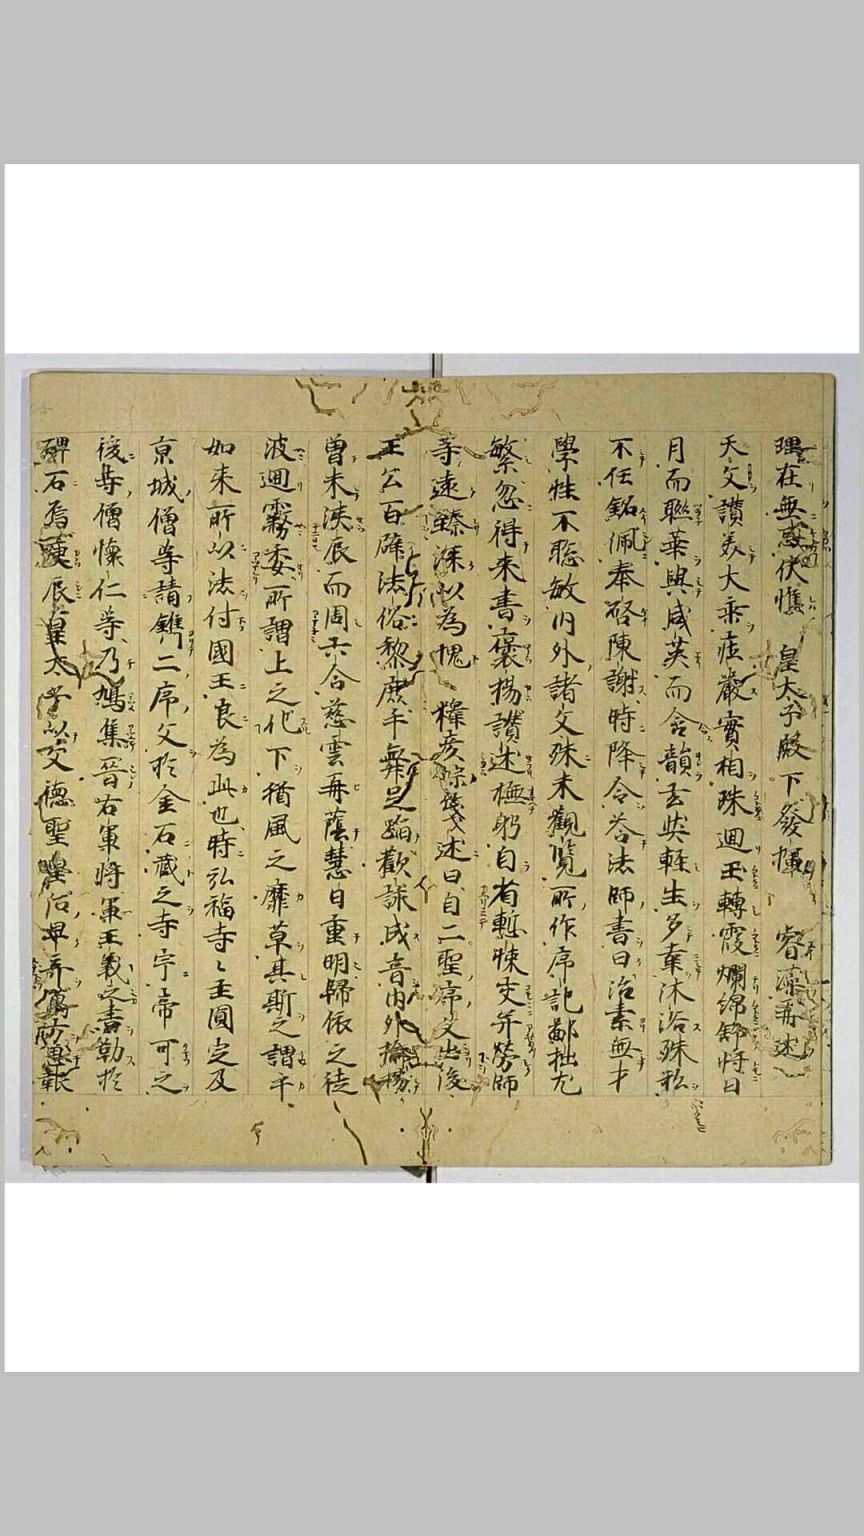 理在無惑伏惟　皇太子殿下發揮　睿藻再述
天文讚美大乘莊嚴實相珠迴玉轉霞爛綿舒將日
月而聯華與咸英而合韻玄奘輕生多幸沐浴殊私
不任銘佩奉啓陳謝時降令荅法師書曰治素無才
學性不聡敏内外諸文殊未觀覽所作序記鄙拙尤
繁忽得来書褒揚讃述撫躬自省慙悚交并勞師
等遠臻深以為愧　釋彦悰箋述曰自二聖序文出後
王公百辟法俗黎庶手舞足蹈歡詠成音内外揄揚
曽未浹辰而周六合慈雲再蔭慧日重明歸依之徒
波迴霧委所謂上之化下猶風之靡草其斯之謂乎
如来所以法付國王良為此也時弘福寺〻主圓定及
京城僧等請鐫二序文於金石蔵之寺宇帝可之
後寺僧懐仁等乃鳩集晉右軍将軍王羲之書勒於
碑石焉庚辰皇太子以文德聖皇后早弃萬方思報